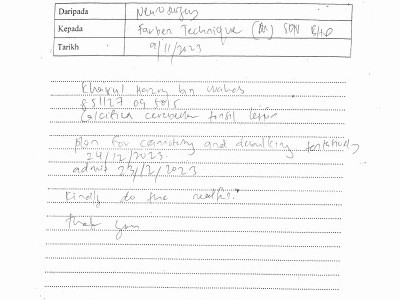 Daripada Neurosurgery
Kepada Farben Technique (M) SDN BHD
Tarikh 9/11/2023
Khairul Hazry bin Wahab
851127 09 5015
Calcified cerebellar
plan for craniotomy and debulking tentatively
24/12/2023
admit 23/12/2023
Kindly do the
thank you